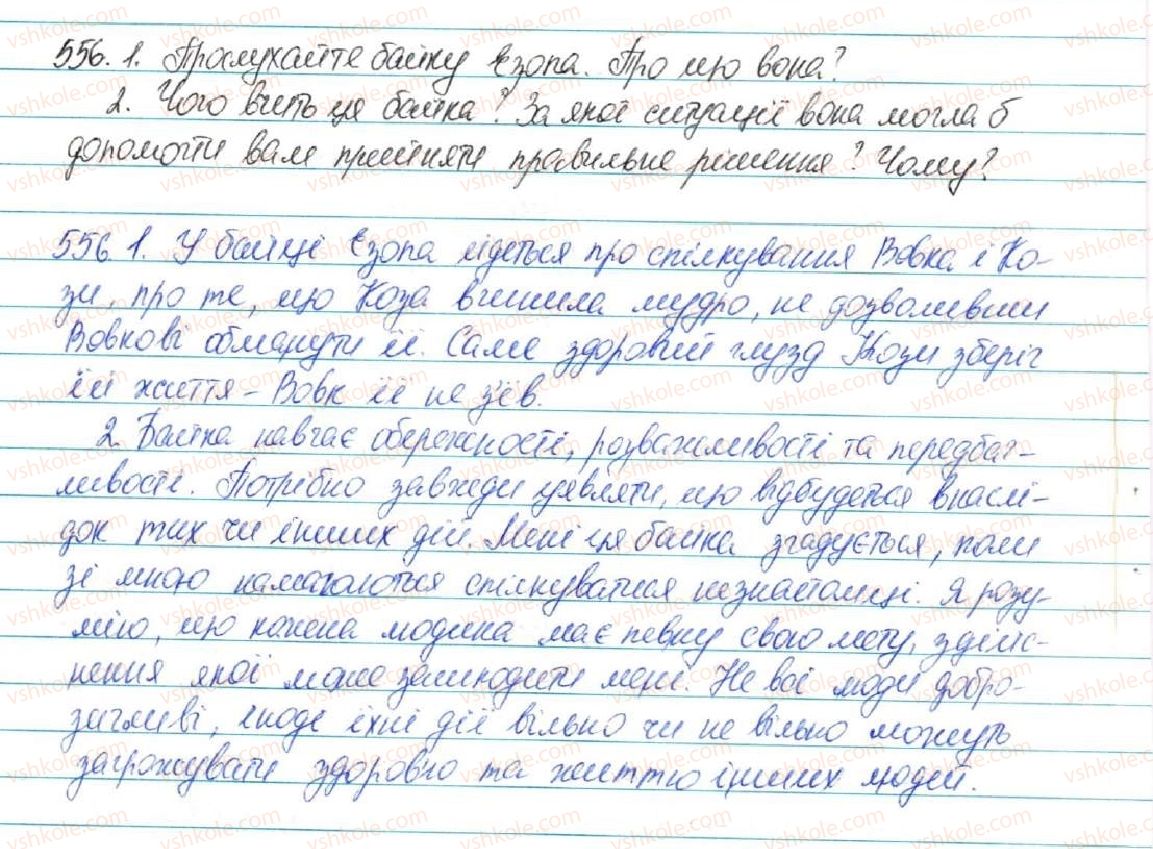 556. 1. Прослухайте байку Езопа. Про що вона?
2. Чого вчить ця байка? За якої ситуації вона могла б
допомогти вам прийняти правильне рішення? Чому?
556 1. У байці Езопа йдеться про спілкування Вовка і Ко-
зи, про те, що Коза вчинила мудро, не дозволивши
Вовкові обманути її. Саме здоровий глузд Кози зберіг
їй життя – Вовк її не з'їв.
2. Байка навчає обережності, розважливості та передбач-
ливості. Потрібно завжди уявляти, що відбудеться внаслі-
док тих чи інших дій. Мені ця байка згадується, коли
зі мною намагаються спілкуватися незнайомці. Я розу-
мію, що кожна людина має певну свою мету, здійс-
нення якої може зашкодити мені. Не всі люди добро-
зичливі, іноді їхні дії вільно чи не вільно можуть
загрожувати здоров'ю та життю інших людей.